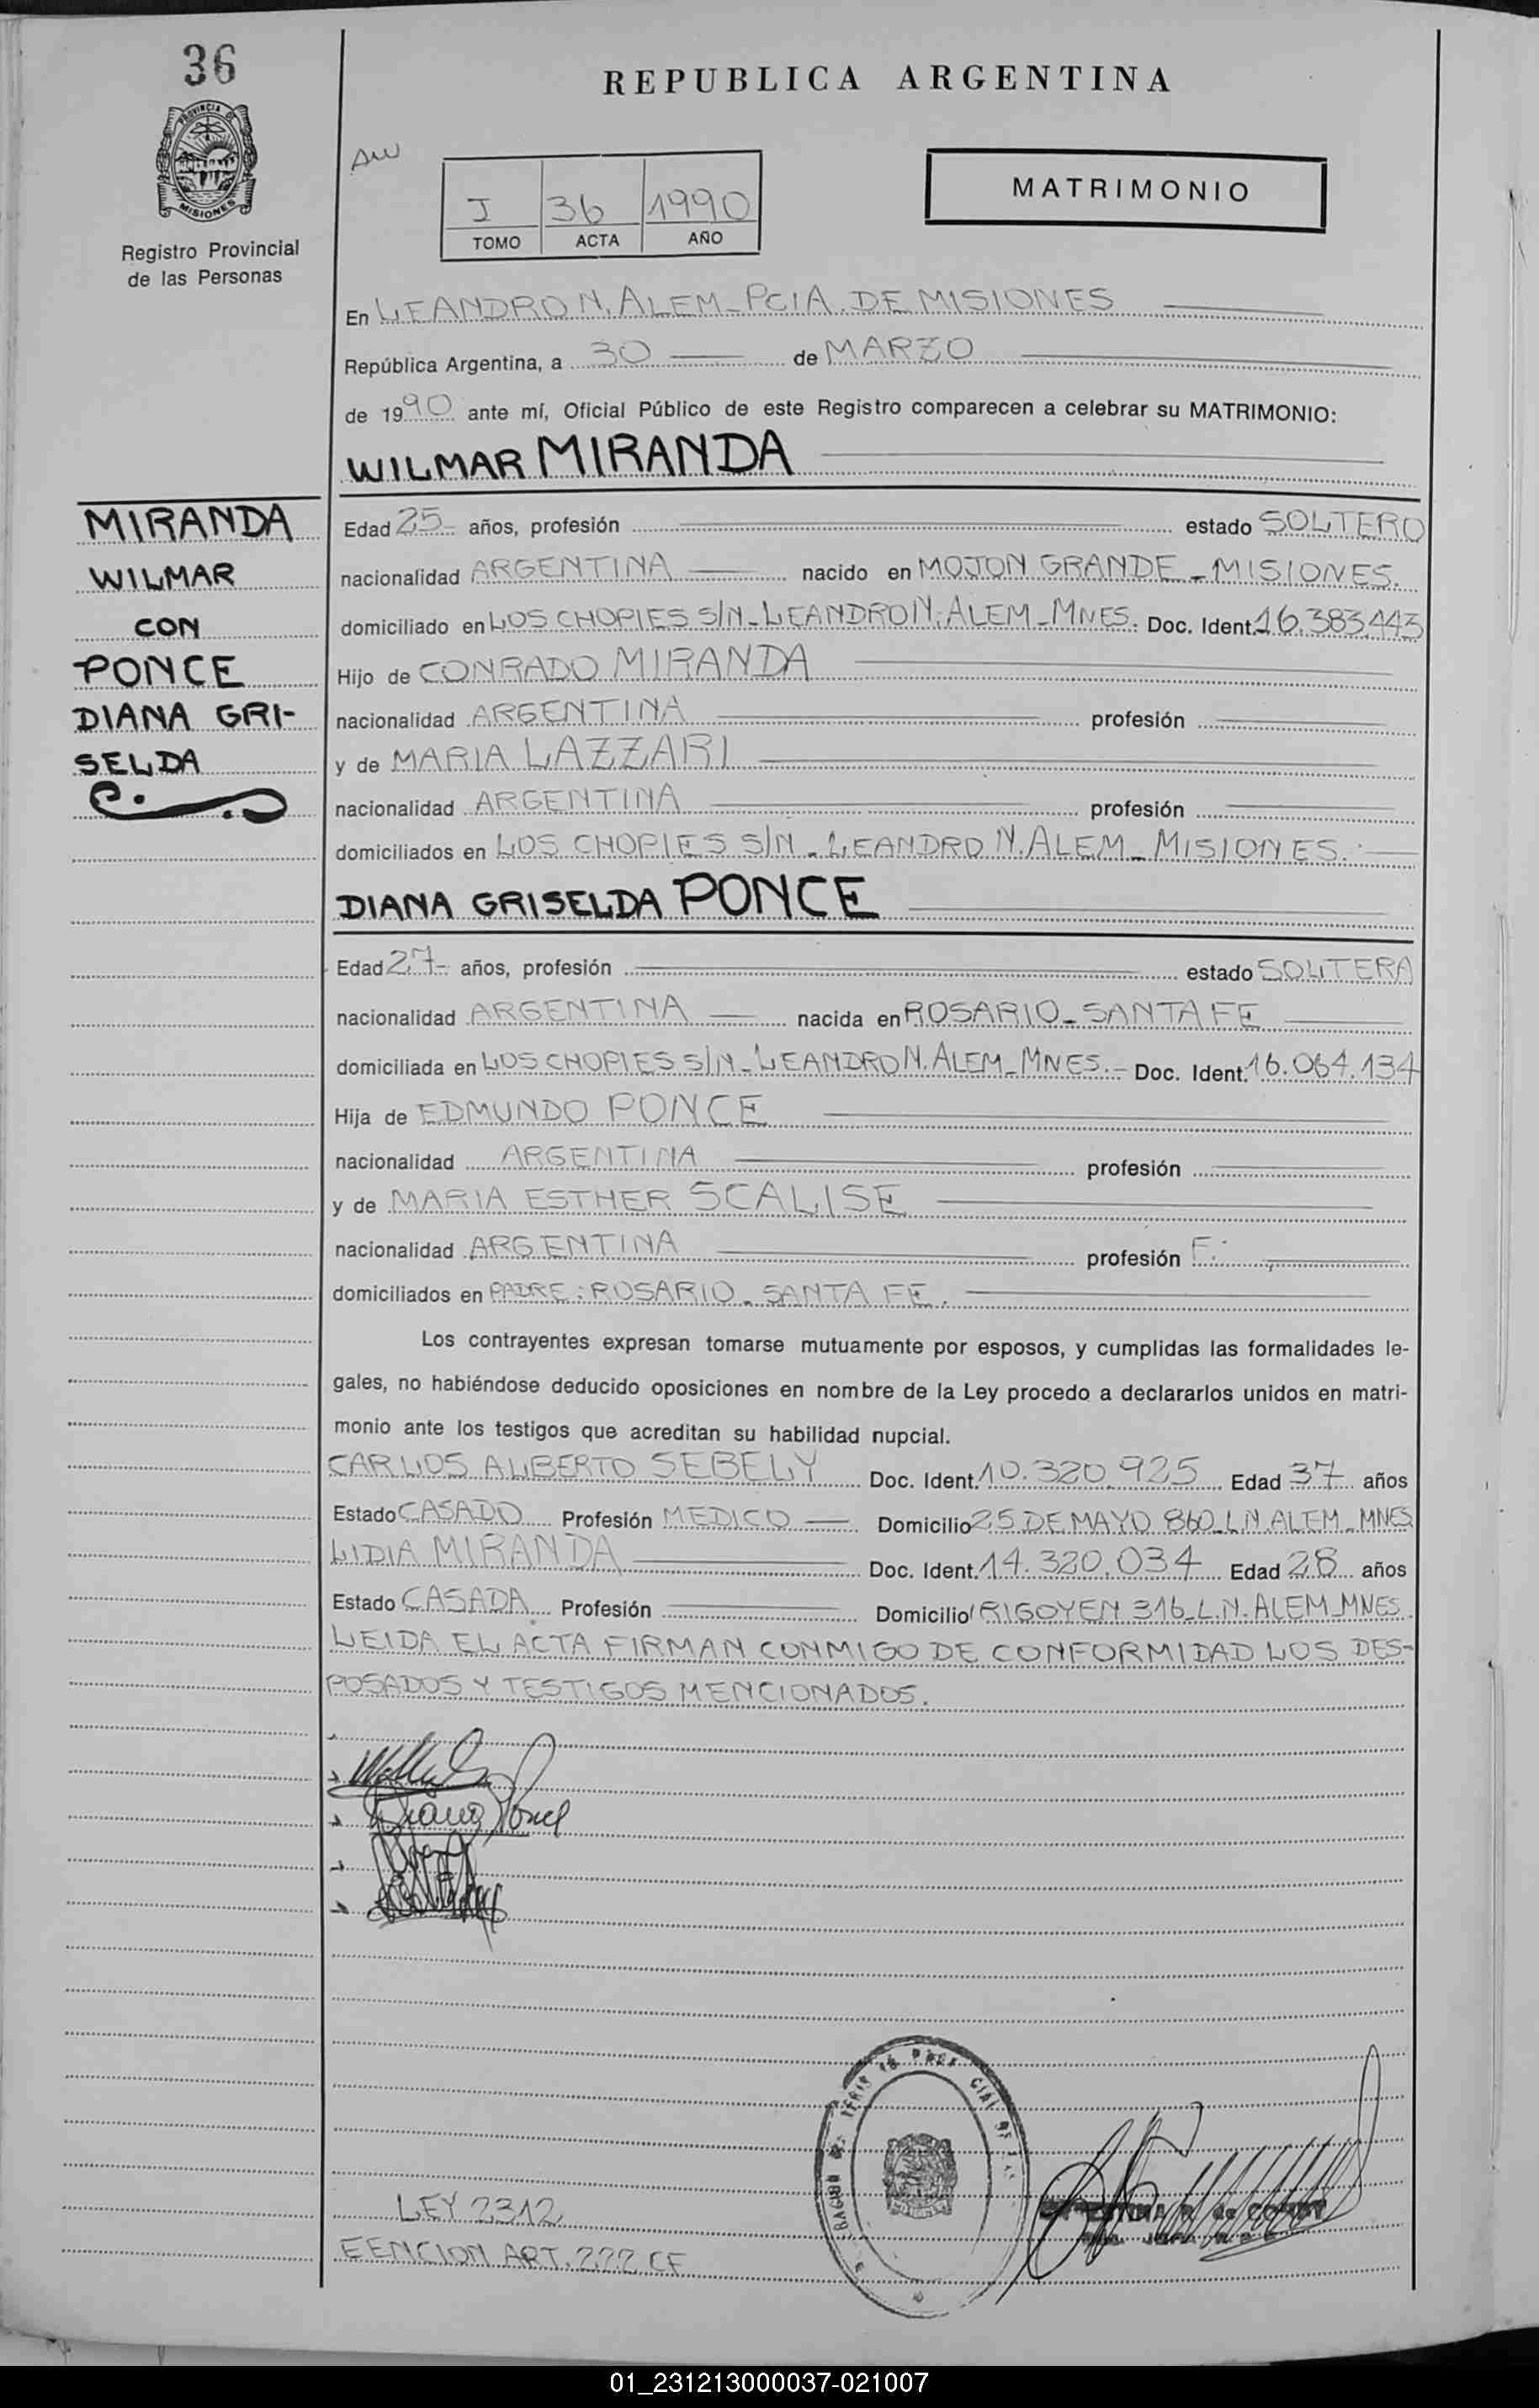 36
REPUBLICA ARGENTINA
PROVINCIA DE
MISIONES
Registro Provincial
de las Personas
I 36 1990
TOMO ACTA AÑO
MATRIMONIO
En LEANDRO N. ALEM_PCIA. DE MISIONES
República Argentina, a 30 de MARZO
de 1990 ante mí, Oficial Público de este Registro comparecen a celebrar su MATRIMONIO:
WILMAR MIRANDA
MIRANDA
WILMAR
CON
PONCE
DIANA GRI-
SELDA
Edad 25- años, profesión estado SOLTERO
nacionalidad ARGENTINA nacido en MOJON GRANDE_MISIONES.
domiciliado en LOS CHOPIES S/N_LEANDRO N. ALEM_MNES. Doc. Ident. 16.383.443
Hijo de CONRADO MIRANDA
nacionalidad ARGENTINA profesión
y de MARIA LAZZARI
nacionalidad ARGENTINA profesión
domiciliados en LOS CHOPIES S/N_LEANDRO N. ALEM_MISIONES.
DIANA GRISELDA PONCE
Edad 27- años, profesión estado SOLTERA
nacionalidad ARGENTINA nacida en ROSARIO_SANTA FE
domiciliada en LOS CHOPIES S/N_LEANDRO N. ALEM_MNES.- Doc. Ident. 16.064.134
Hija de EDMUNDO PONCE
nacionalidad ARGENTINA profesión
y de MARIA ESTHER SCALISE
nacionalidad ARGENTINA profesión F.
domiciliados en PADRE: ROSARIO_SANTA FE.
Los contrayentes expresan tomarse mutuamente por esposos, y cumplidas las formalidades le-
gales, no habiéndose deducido oposiciones en nombre de la Ley procedo a declararlos unidos en matri-
monio ante los testigos que acreditan su habilidad nupcial.
CARLOS ALBERTO SEBELY Doc. Ident. 10.320.925 Edad 37 años
Estado CASADO Profesión MEDICO Domicilio 25 DE MAYO 860_L.N. ALEM_MNES
LIDIA MIRANDA Doc. Ident. 14.320.034 Edad 28 años
Estado CASADA Profesión Domicilio IRIGOYEN 316_L.N. ALEM_MNES.
LEIDA EL ACTA FIRMAN CONMIGO DE CONFORMIDAD LOS DES-
POSADOS Y TESTIGOS MENCIONADOS.
Diana Ponce
LEY 2312
EENCION ART. 222 CF
01_231213000037-021007